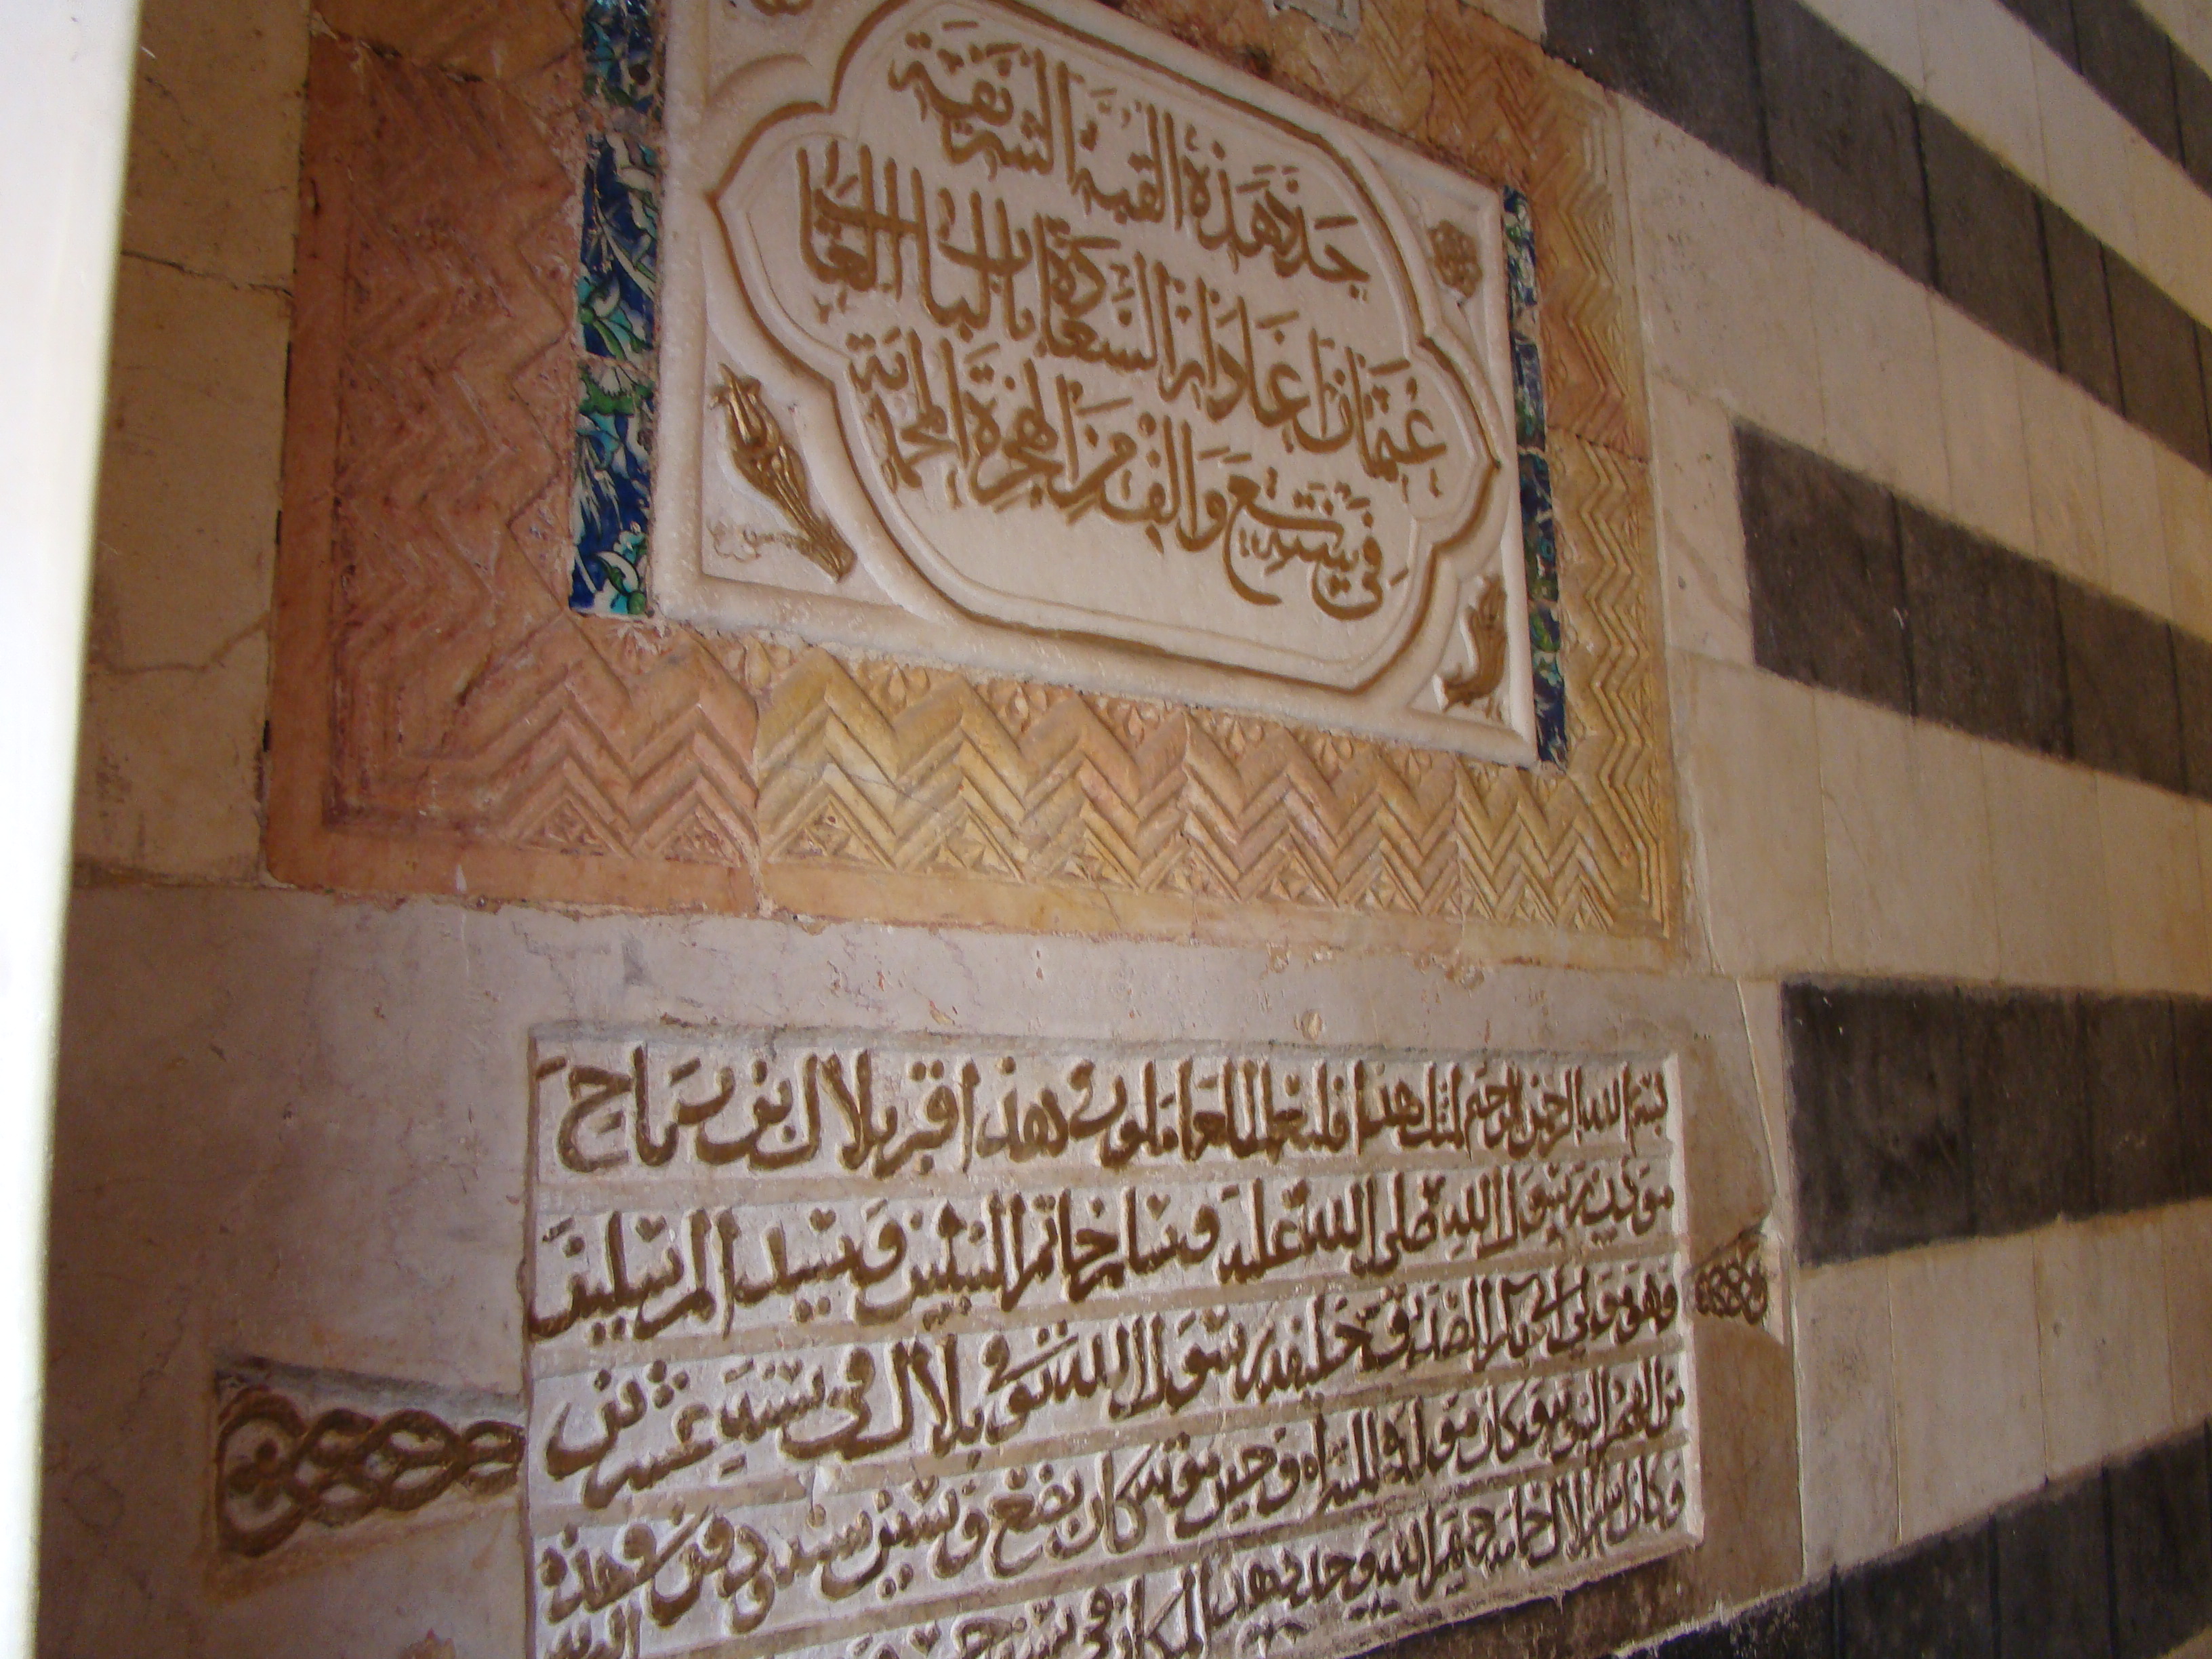 جدد هذه القبة الشريفة
عثمان اغا دار السعادة بالباب العالي
في سنة تسع والف من الهجرة المحمدية
بسم الله الرحمن الرحيم لمثل هذا فليعمل العاملون هذا قبر بلال بن حمامة
موذن رسول الله صلى الله عليه وسلم خاتم النبيين وسيد المرسلين
وهو مولى ابي بكر الصديق خليفة رسول الله توفي بلال في سنة عشرين
من الهجرة النبوية وكان مولده السراة وحين موته كان بضع وستين سنة ودفن وهذه
وكان بلال حمامة المكان في سنة